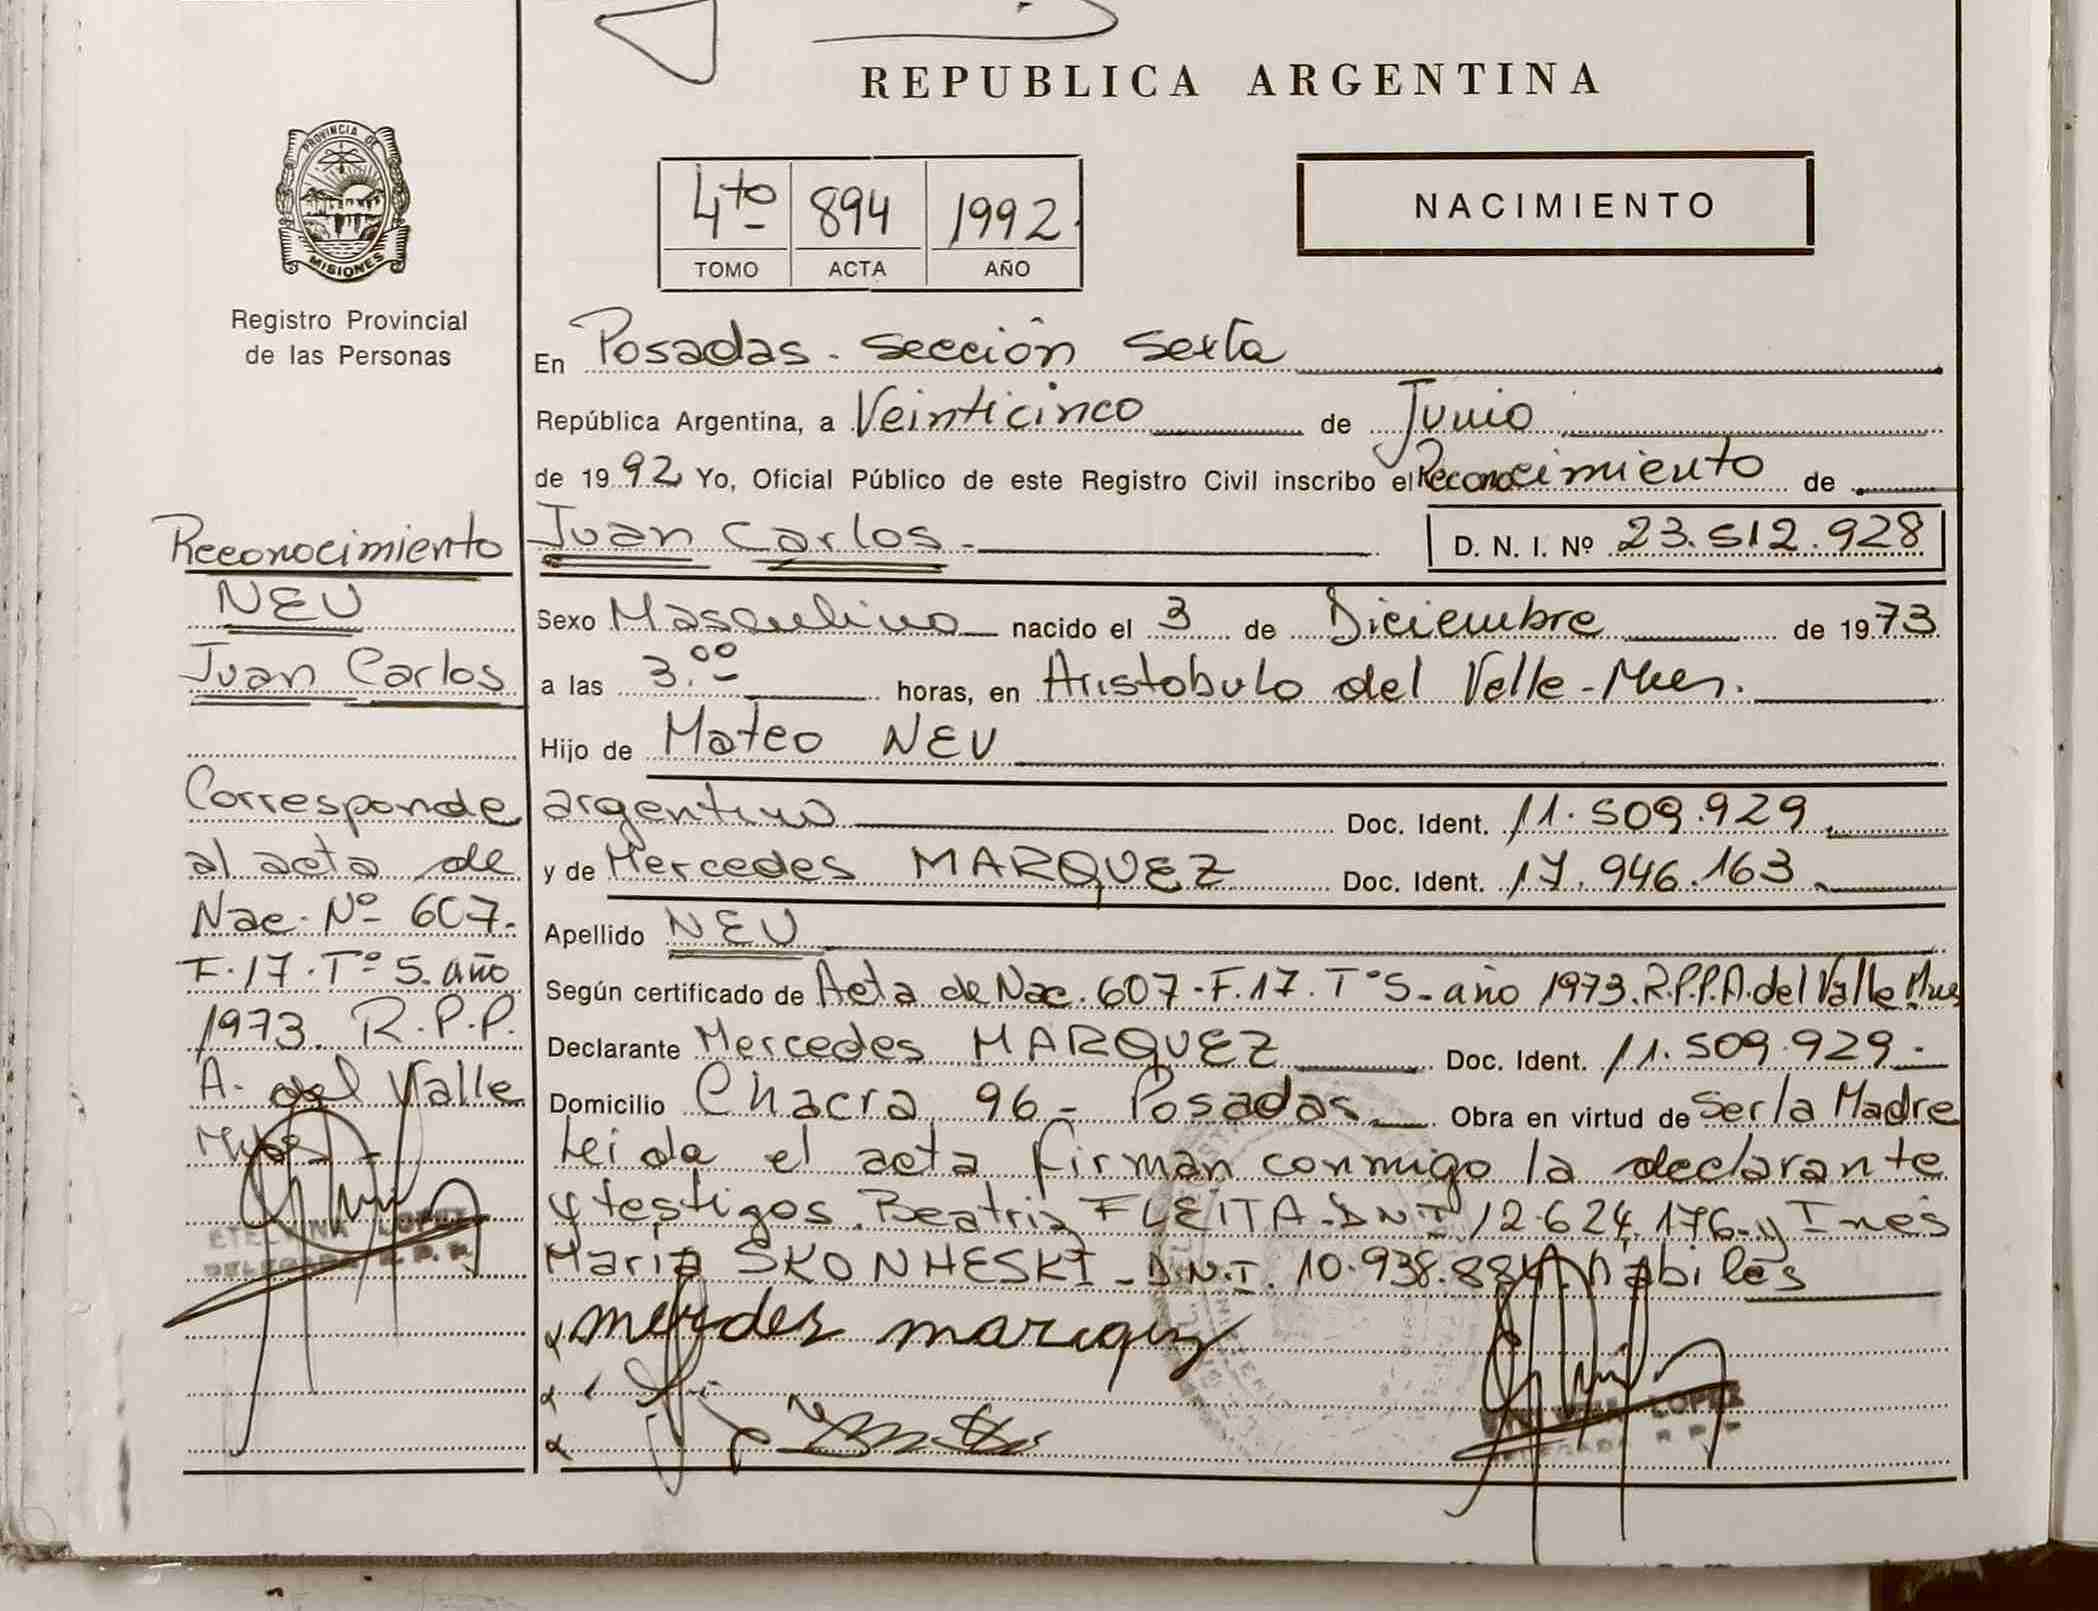 REPUBLICA ARGENTINA
PROVINCIA DE
MISIONES
Registro Provincial
de las Personas
4to 894 1992
TOMO ACTA AÑO
NACIMIENTO
En Posadas - Sección Sexta
República Argentina, a Veinticinco de Junio
de 1992 Yo, Oficial Público de este Registro Civil inscribo el Reconocimiento de
Juan Carlos - D. N. I. Nº 23.512.928
Sexo Masculino nacido el 3 de Diciembre de 1973
a las 3.00 horas, en Aristobulo del Valle - Mnes.
Hijo de Mateo NEU
argentino Doc. Ident. 11.509.929
y de Mercedes MARQUEZ Doc. Ident. 17.946.163
Apellido NEU
Según certificado de Acta de Nac. 607 - F.17. Tº 5 - año 1973. R.P.P. A. del Valle Mnes
Declarante Mercedes MARQUEZ Doc. Ident. 11.509.929 -
Domicilio Chacra 96 - Posadas Obra en virtud de Ser la Madre
Leida el acta firman conmigo la declarante
y testigos. Beatriz FLEITA - D.N.I. 12.624.176 - y Inés
Maria SKONHESKI - D.N.I. 10.938.884 hábiles
merdes marquez
Reconocimiento
NEU
Juan Carlos
Corresponde
al acta de
Nac. Nº 607.
F. 17. Tº 5. año
1973. R.P.P.
A. del Valle
Mnes -
ETELVINA LOPEZ
DELEGADA R. P. P.
LOPEZ
R. P. P.